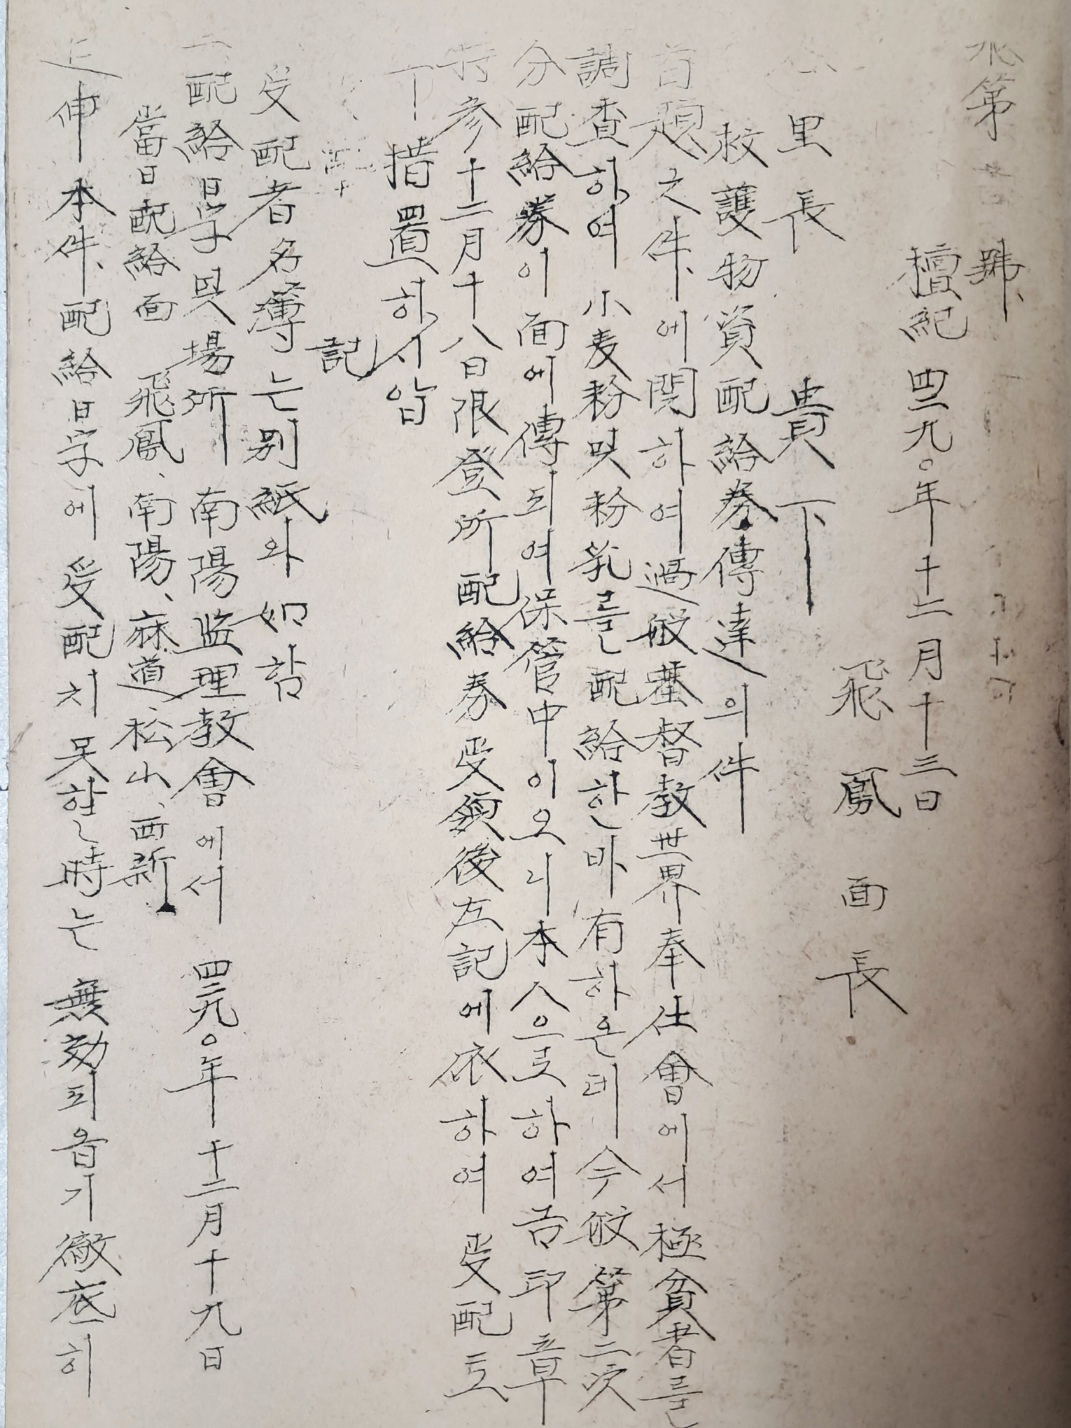 飛第 號
檀紀 四二九〇年 十二月 十三日
飛鳳面長
里長 貴下
救護物資配給券傳達의件
首題之件에 関하여 過般基督教世界奉仕會에서 極貧者를
調査하여 小麦粉및粉乳를 配給한바 有하온데 今般第二次
分配給券이 面에 傳되여 保管中이오니 本人으로하여금 印章
持参 十二月十八日限登所 配給券受領後 左記에 依하여 受配토
措置하시압
記
受配者名簿는 別紙와 如함
配給日字및場所 南陽監理教會에서 四二九〇年 十二月十九日
當日配給面 飛鳳、南陽、麻道、松山、西新
追伸 本件、配給日字에 受配치 못할 時는 無効되옴기 徹底히